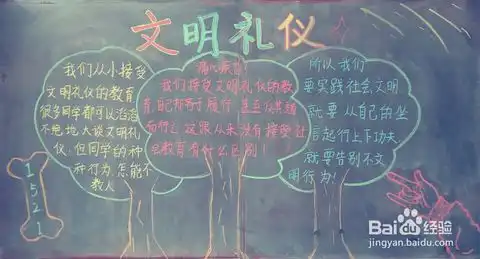 文明礼仪
我们从小接受
文明礼仪的教育
很多同学都可以滔滔
不绝地大谈文明礼
仪,但同学的种
种行为,怎能不
教人
痛心疾首!
我们接受文明礼仪的教
育,自己却不履行
而行之,这跟从来没有接受过
教育有什么区别!
所以我们
要实践社会文明
就要从自己的坐
言起行上下功夫,
就要告别不文
明行为!
1521
Baidu经验
jingyan.baidu.com